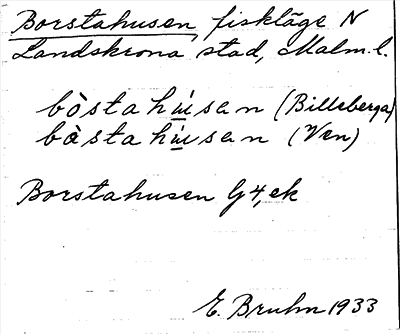 Borstahusen, fiskläge N
Landskrona stad, Malm. l.
bòstahúsen (Billeberga)
bàstahúsen (Ven)
Borstahusen G 4, ek
E. Bruhn 1933